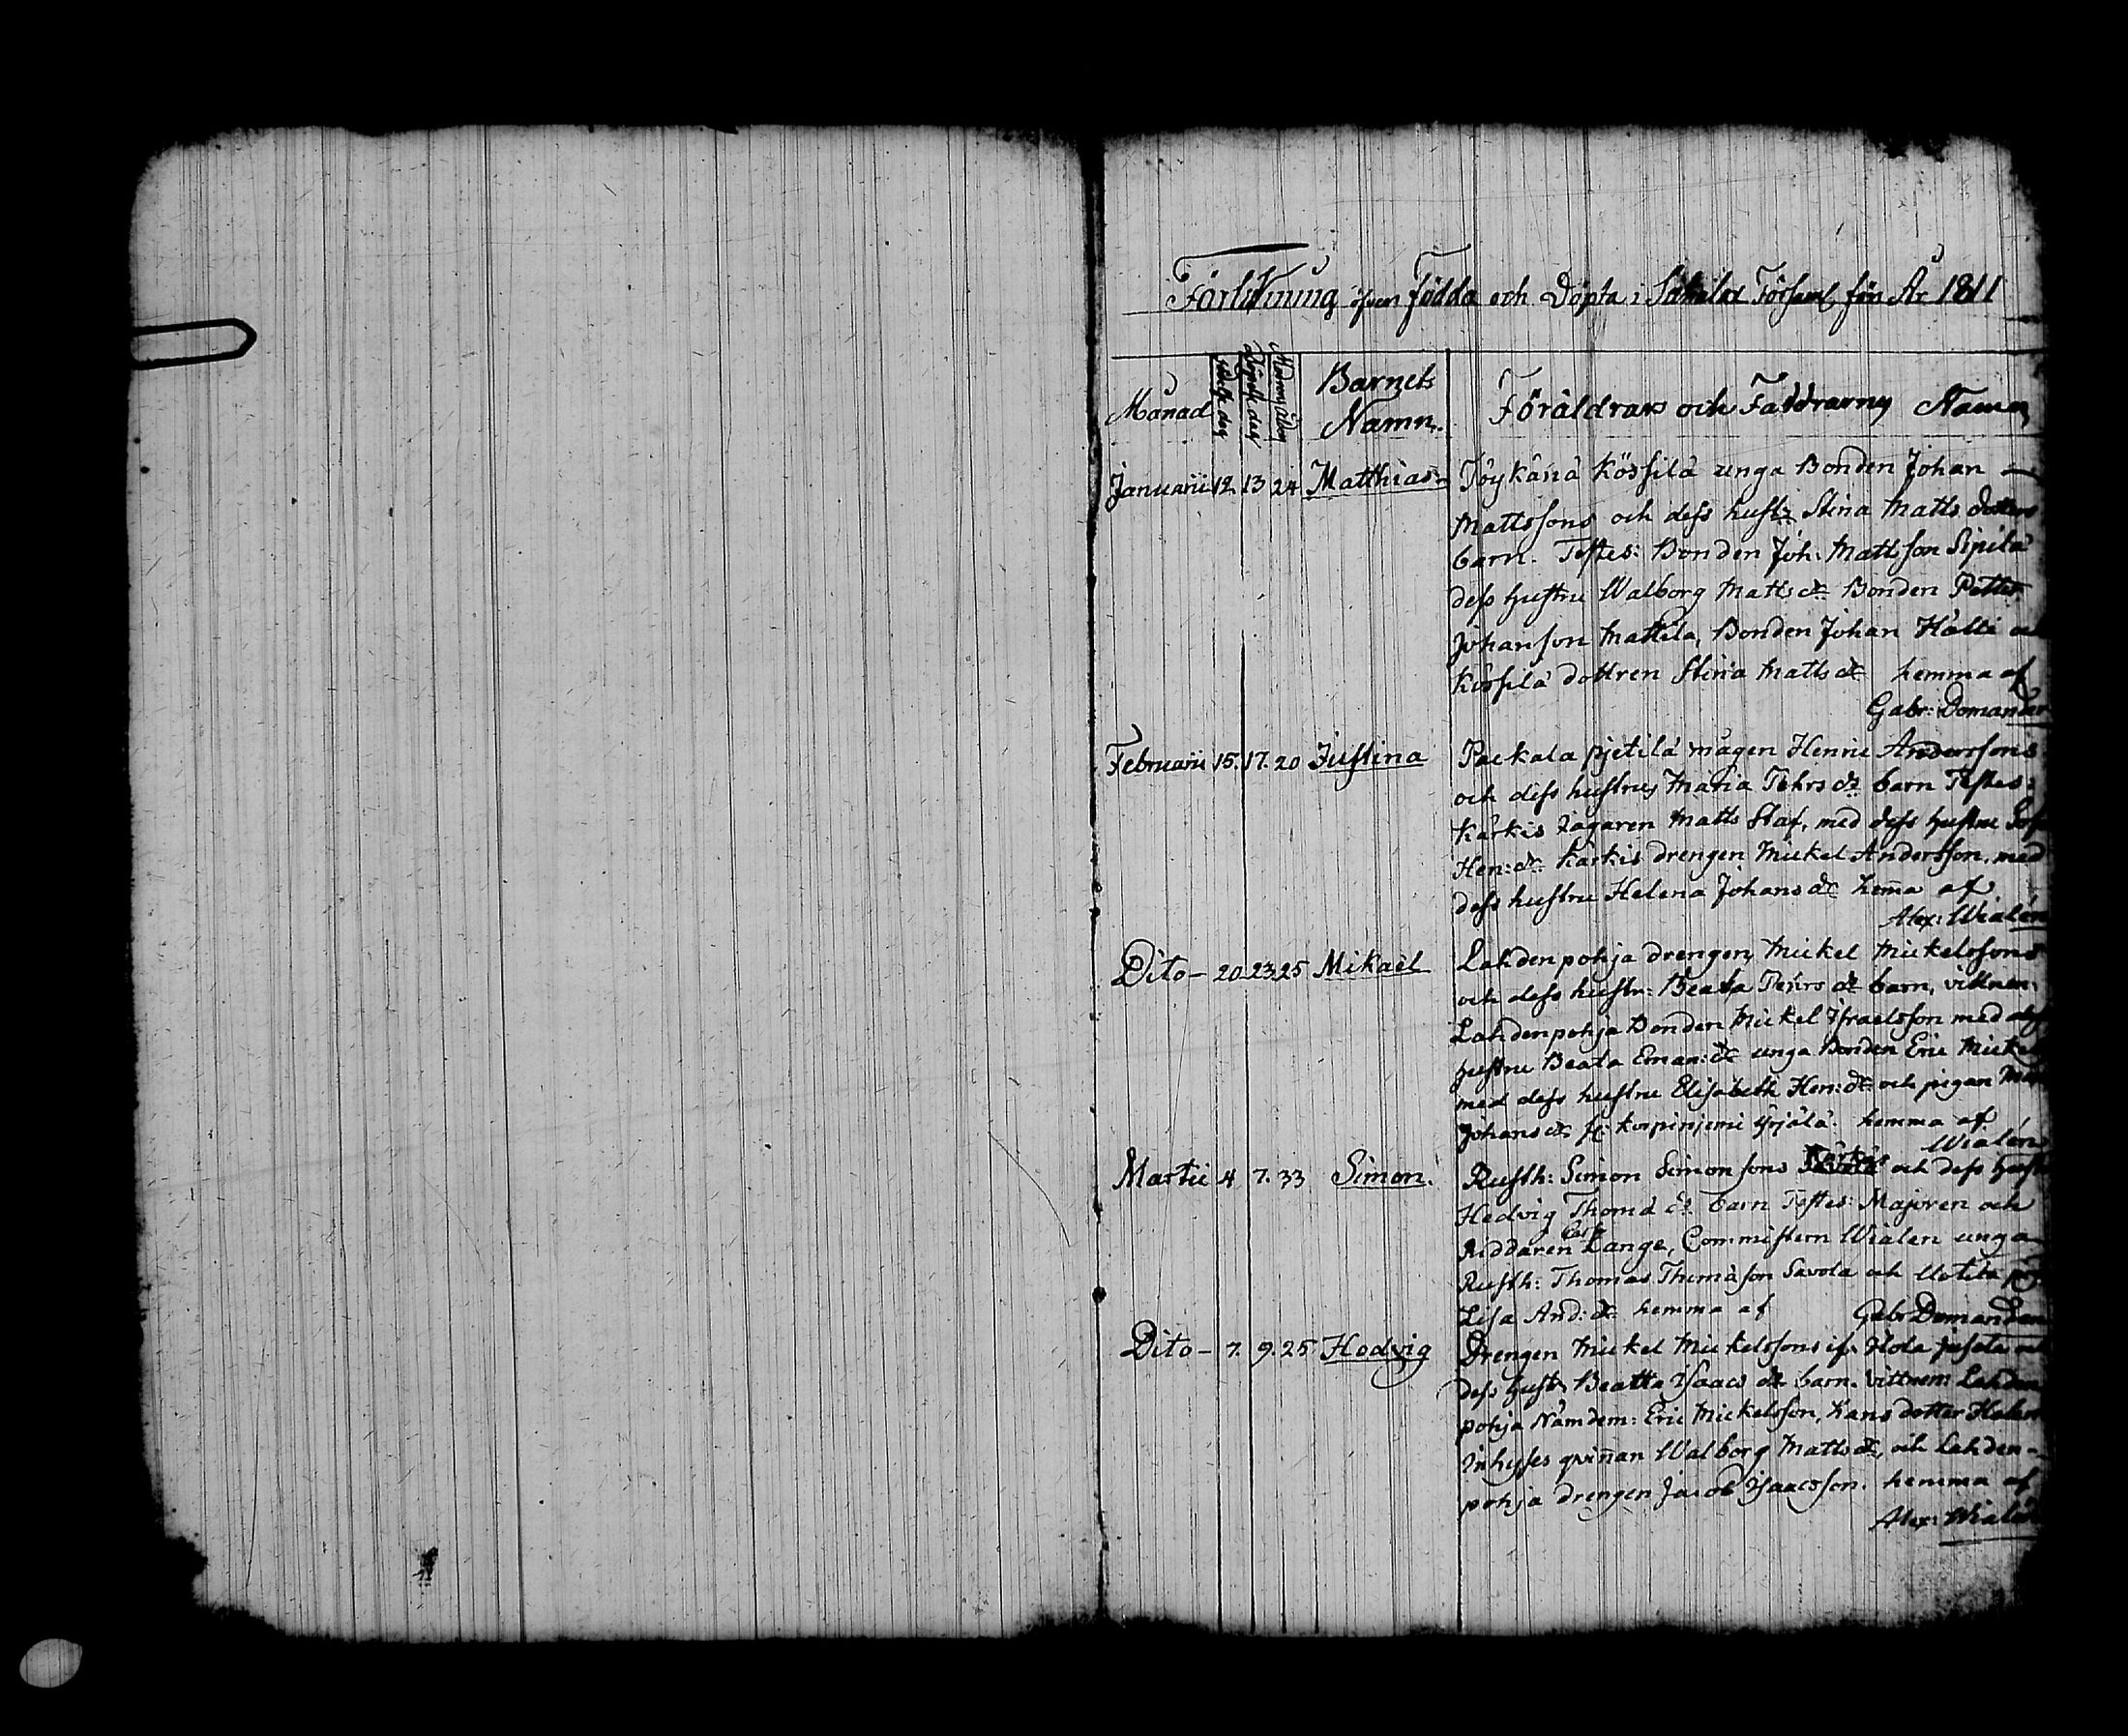 Förtekning öfver Födda och Döpta i Säkylä Församl för År 1811
Månad
födelse dag
Döpelse dag
Modrens Ålder
Barnets
Namn.
Föräldrars och Faddrarnes Namn
Januarii 12 13 24 Matthias
Köykänä Kössilä unga Bonden Johan
Mattssons och dess hustr Stina Matts dotters
barn. Testes: Bonden Joh: Mattsson Sipilä
dess hustru Walborg Matts dr Bonden Petter
Johansson Mattila, Bonden Johan Hälli oc
Kössilä dottren Stina Matts dr hemma af
Gabr: Domander
Februarii 15. 17. 20 Justina
pjetilä mågen Henric Anderssons
och dess hustrus Maria Tehrs dr barn Testes:
Kärkis Matts Staf, med dess hustru
Hen: dr Kärkis drengen Mickel Andersson, med
dess hustru Helena Johans dr hem̄a af
Alex: Wialén
Dito – 20 23 25 Mikaël
Lahdenpohja drengen Mickel Mickelssons
och dess hustr: Beata dr barn, vittnen:
Lahdenpohja Bonden Mickel Israelsson med
hustru Beata Eman: dr unga Bonden Eric Mickel
med dess hustru Elisabeth Hen: dr och pigan
Johans dr fr Korpiniemi Yrjälä. hemma af
Wialén
Martii 4 7. 33 Simon.
Rusth: Simon Simonsons Kärkis och dess hustr
Hedvig Thomæ dr barn Testes: Majoren och
Riddaren Lange, Commistern Wialen unga
Rusth: Thomas Thomasson Savola och Uotila
Lisa And: dr hemma af Gabr Domander
Dito – 7. 9. 25 Hedvig
Drengen Mickel Mickelssons if: Hola
dess hustr Beatta Isaacs dr barn. vittnen: Lahden
pohja Nämdem: Eric Mickelsson, hans dotter Helen
Inhyses qvin̄an Walborg Matts dr, och Lahden-
pohja drengen Jacob Isaacsson. hemma af
Alex: Wialén